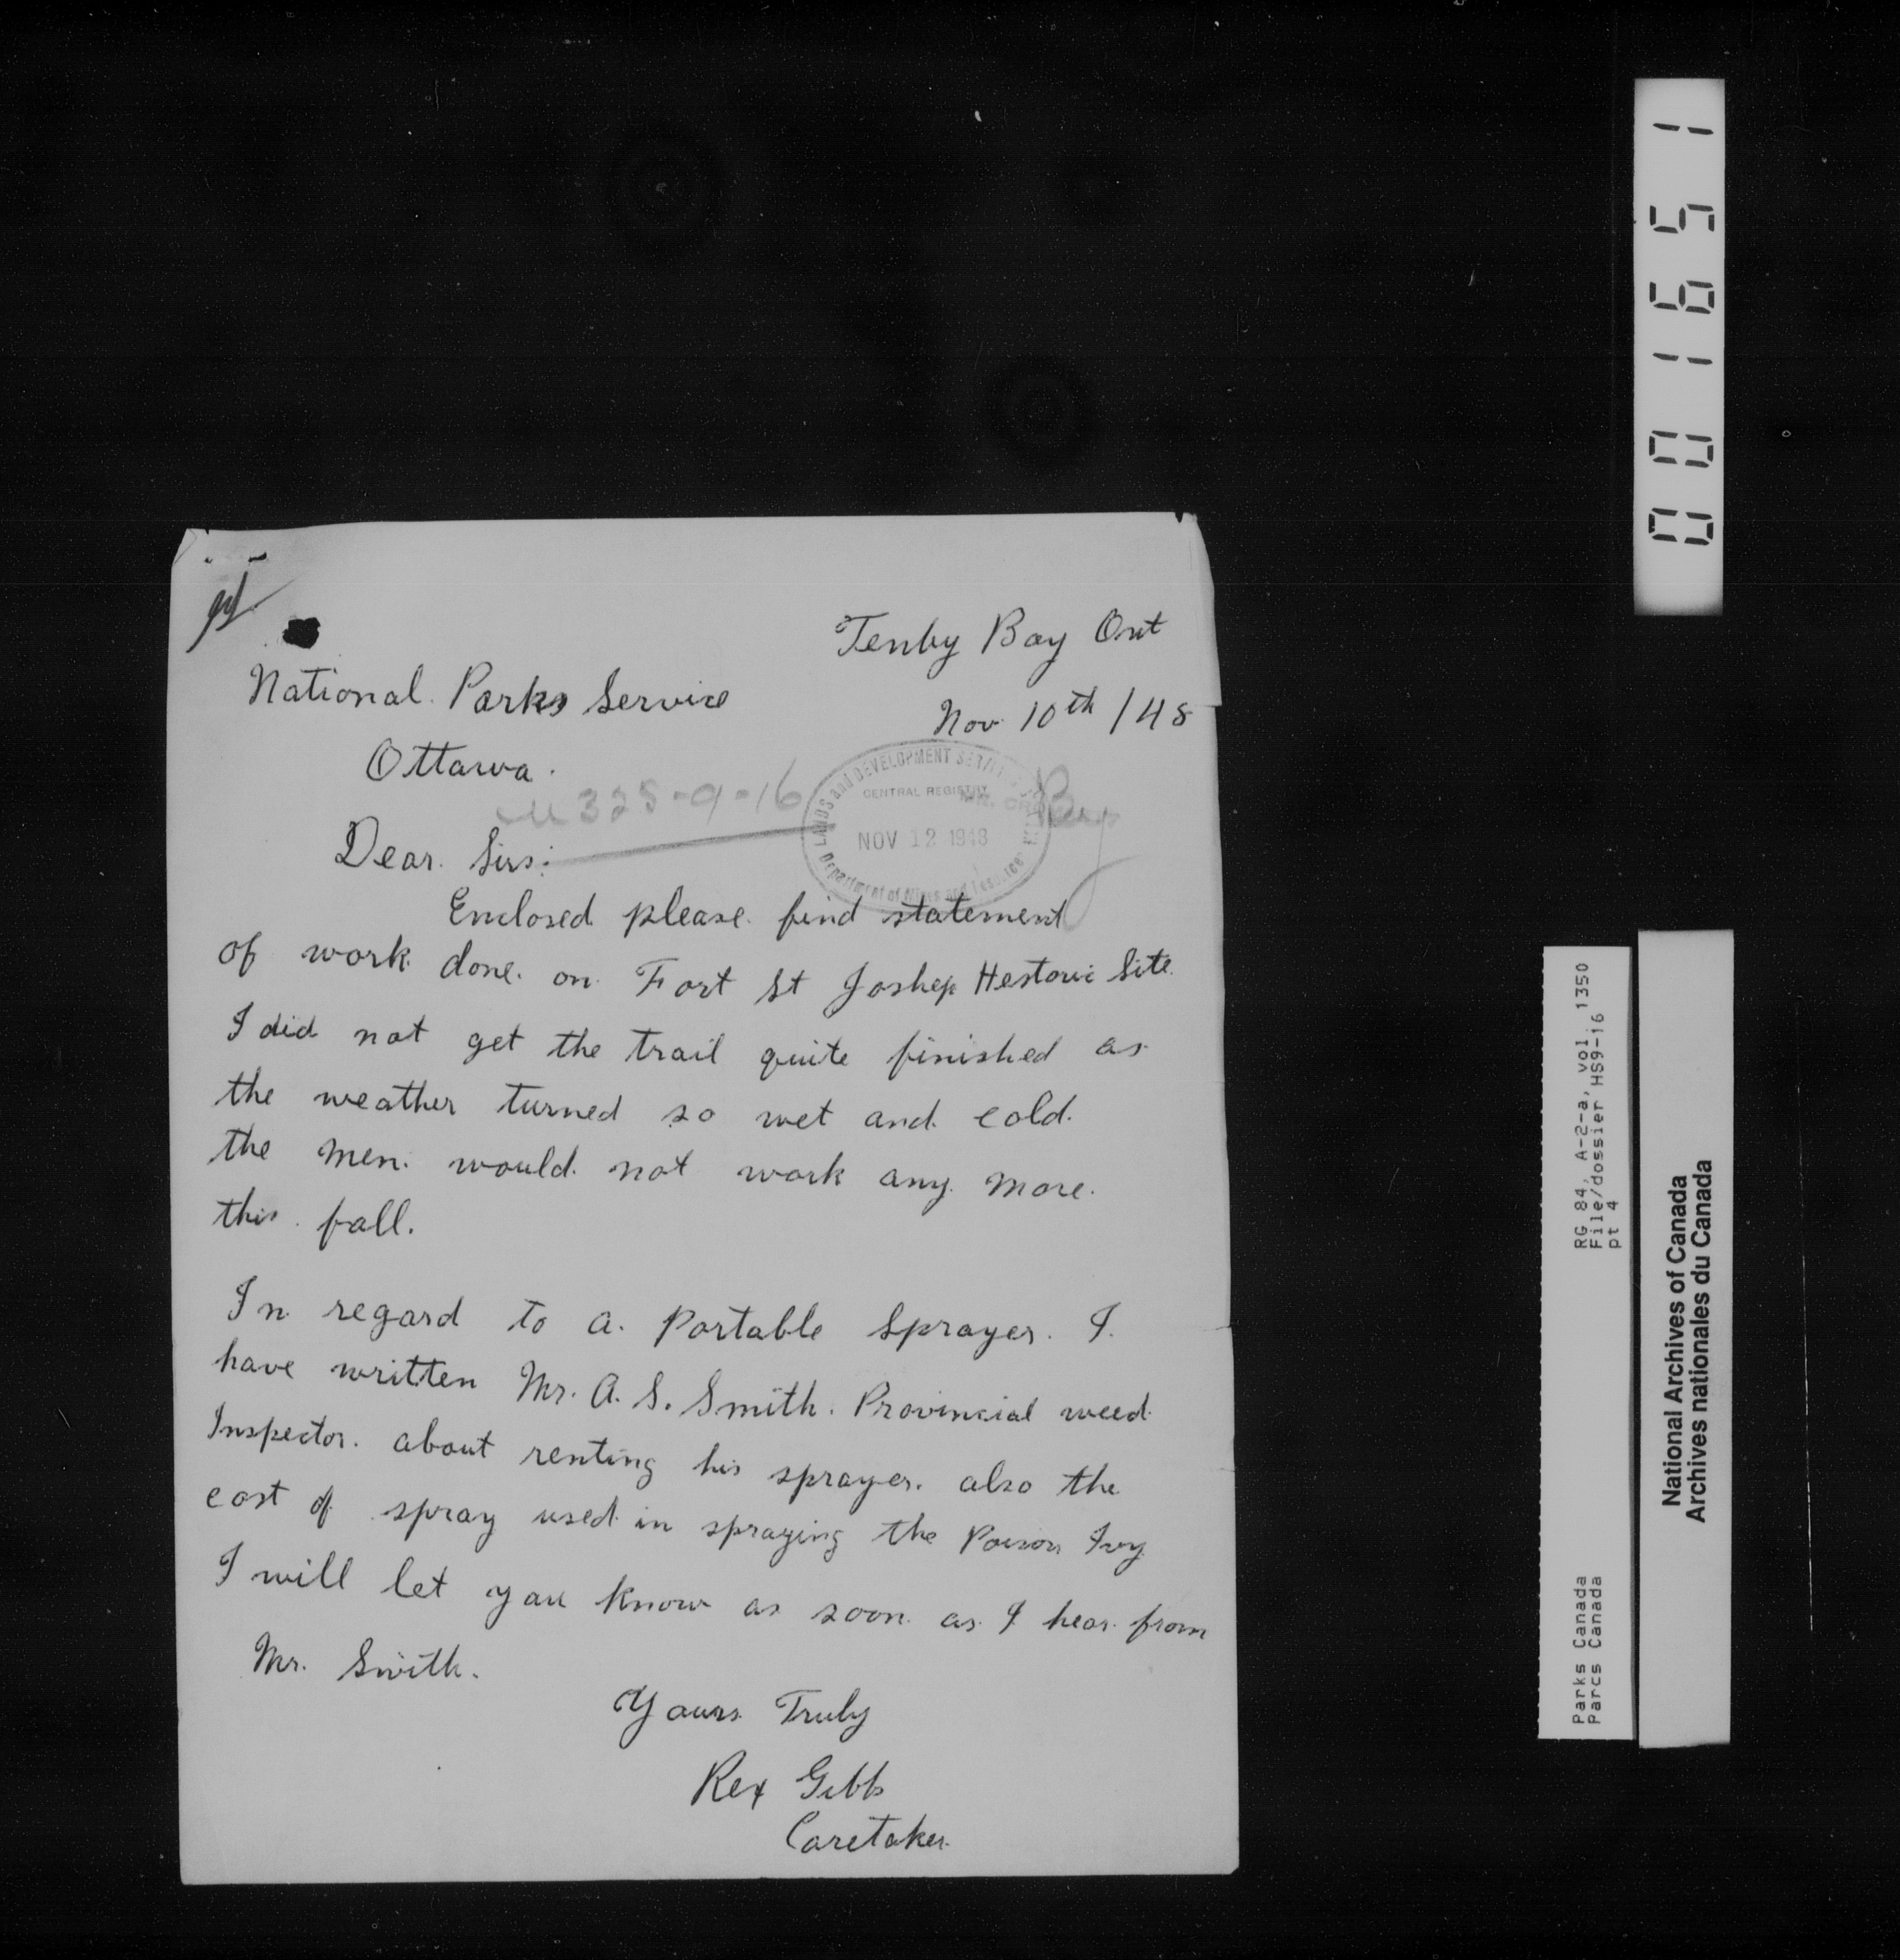 Tenby Bay Ont
National Parks Service
Nov 10th /48
Ottawa.
325-9-16
LANDS and DEVELOPMENT
CENTRAL REGISTRY
NOV 12 1948
Department of Mines and Resources
Dear. Sirs:
Enclosed please find statement
of work done. on Fort St Joshep Hestoric Site.
I did not get the trail quite finished as
the weather turned so wet and cold.
the men. would not work any more.
this fall.
In regard to a. Portable Sprayer. I.
have written Mr. A. S. Smith. Provincial weed
Inspector. about renting his sprayer. also the
cost of spray used in spraying the Poison Ivy
I will let you know as soon as I hear from
Mr. Smith.
Yours Truly
Rex Gibbs
Caretaker.
001651
RG 84, A-2-a, vol. 1350
File/dossier HS9-16
pt 4
Parks Canada
Parcs Canada
National Archives of Canada
Archives nationales du Canada